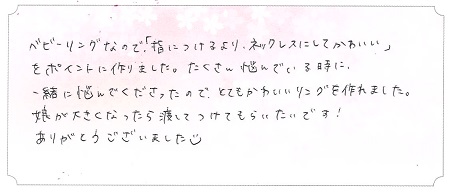 ベビーリングなので、「指につけるより、ネックレスにしてかわいい」
をポイントに作りました。たくさん悩んでいる時に、
一緒に悩んでくださったので、とてもかわいいリングを作れました。
娘が大きくなったら渡してつけてもらいたいです!
ありがとうございました